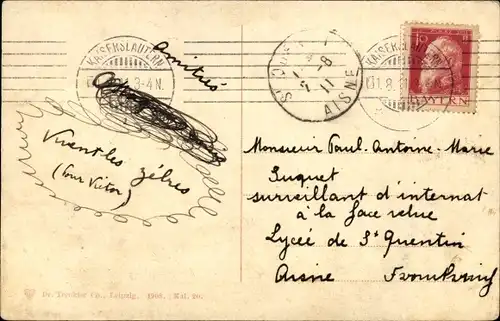 KAISERSLAUTERN
3-4N.
Amitiés
ST QUENTIN
1-8
11
AISNE
KAISERSLAUTERN
31.8.11
10
BAYERN
Vivent les zèbres
(Tour Victor)
Monsieur Paul-Antoine-Marie
Suquet
surveillant d'internat
à la face velue
Lycée de St Quentin
Aisne
Dr. Trenkler Co., Leipzig. 1908. Kai. 20.